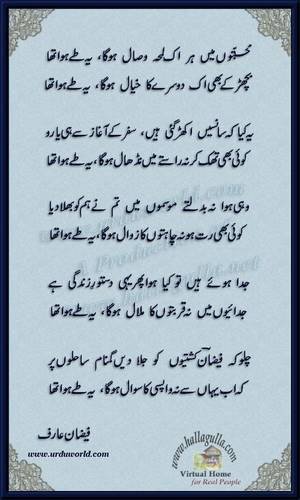 محبتوں میں ہر اک لمحہ وصال ہوگا، یہ طے ہوا تھا
بچھڑ کے بھی اک دوسرے کا خیال ہوگا، یہ طے ہوا تھا
یہ کیا کہ سانسیں اکھڑ گئی ہیں، سفر کے آغاز سے ہی یارو
کوئی بھی تھک کر نہ راستے میں نڈھال ہوگا، یہ طے ہوا تھا
وہی ہوا نہ بدلتے موسموں میں تم نے ہم کو بھلا دیا
کوئی بھی رت ہو نہ چاہتوں کا زوال ہوگا، یہ طے ہوا تھا
جدا ہوئے ہیں تو کیا ہوا پھر یہی دستور زندگی ہے
جدائیوں میں نہ قربتوں کا ملال ہوگا، یہ طے ہوا تھا
چلو کہ فیضان کشتیوں کو جلا دیں گمنام ساحلوں پر
کہ اب یہاں سے نہ واپسی کا سوال ہوگا، یہ طے ہوا تھا
فیضان عارف
www.urduworld.com
www.hallagulla.com
Virtual Home
for Real People